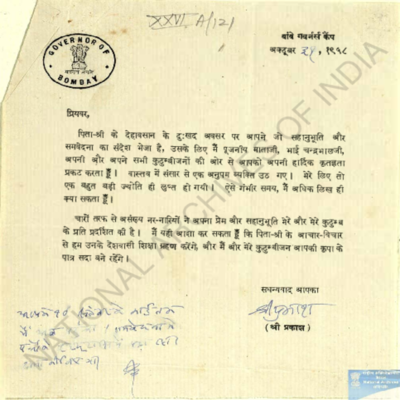 XXVI A/121
GOVERNOR OF BOMBAY
बंबई गवर्नर्स कैंप
अक्टूबर २५, १९५८
प्रियवर,
पिता-श्री के देहावसान के दुःखद अवसर पर आपने जो सहानुभूति और
समवेदना का संदेश भेजा है, उसके लिए मैं पूजनीय माताजी, भाई चन्द्रभालजी,
अपनी और अपने सभी कुटुम्बीजनों की ओर से आपको अपनी हार्दिक कृतज्ञता
प्रकट करता हूँ। वास्तव में संसार से एक अनुपम व्यक्ति उठ गए। मेरे लिए तो
एक बहुत बड़ी ज्योति ही लुप्त हो गयी। ऐसे गंभीर समय, मैं अधिक लिख ही
क्या सकता हूँ।
चारों तरफ से असंख्य नर-नारियों ने अपना प्रेम और सहानुभूति मेरे और मेरे कुटुम्ब
के प्रति प्रदर्शित की है। मैं यही आशा कर सकता हूँ कि पिता-श्री के आचार-विचार
से हम उनके देशवासी शिक्षा ग्रहण करेंगे, और मैं और मेरे कुटुम्बीजन आपकी कृपा के
पात्र सदा बने रहेंगे।
सधन्यवाद आपका
श्रीप्रकाश
(श्री प्रकाश)
NATIONAL ARCHIVES OF INDIA